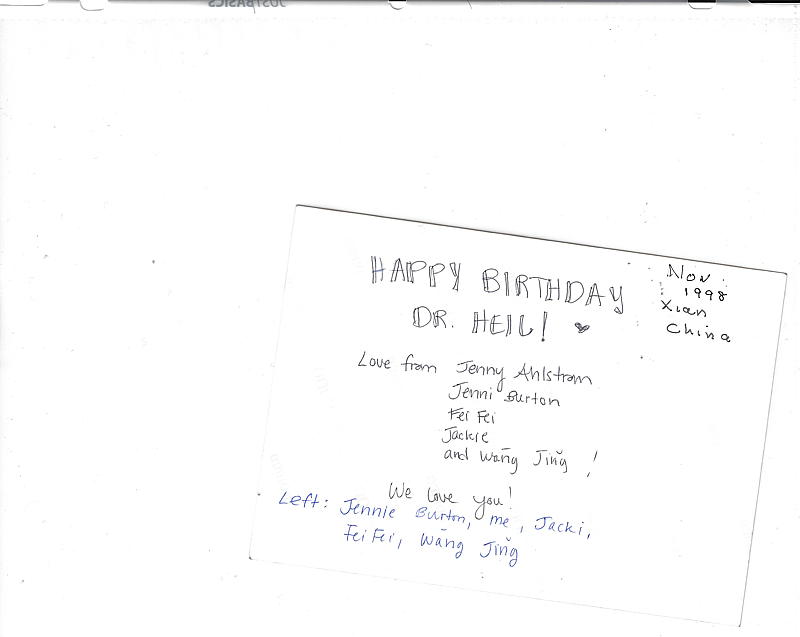 HAPPY BIRTHDAY
DR. HEIL!
Nov
1998
Xian
China
Love from Jenny Ahlstrom
Jenni Burton
Fei Fei
Jackie
and Wāng Jǐng !
We love you!
Left: Jennie Burton, me, Jacki,
Fei Fei, Wāng Jǐng